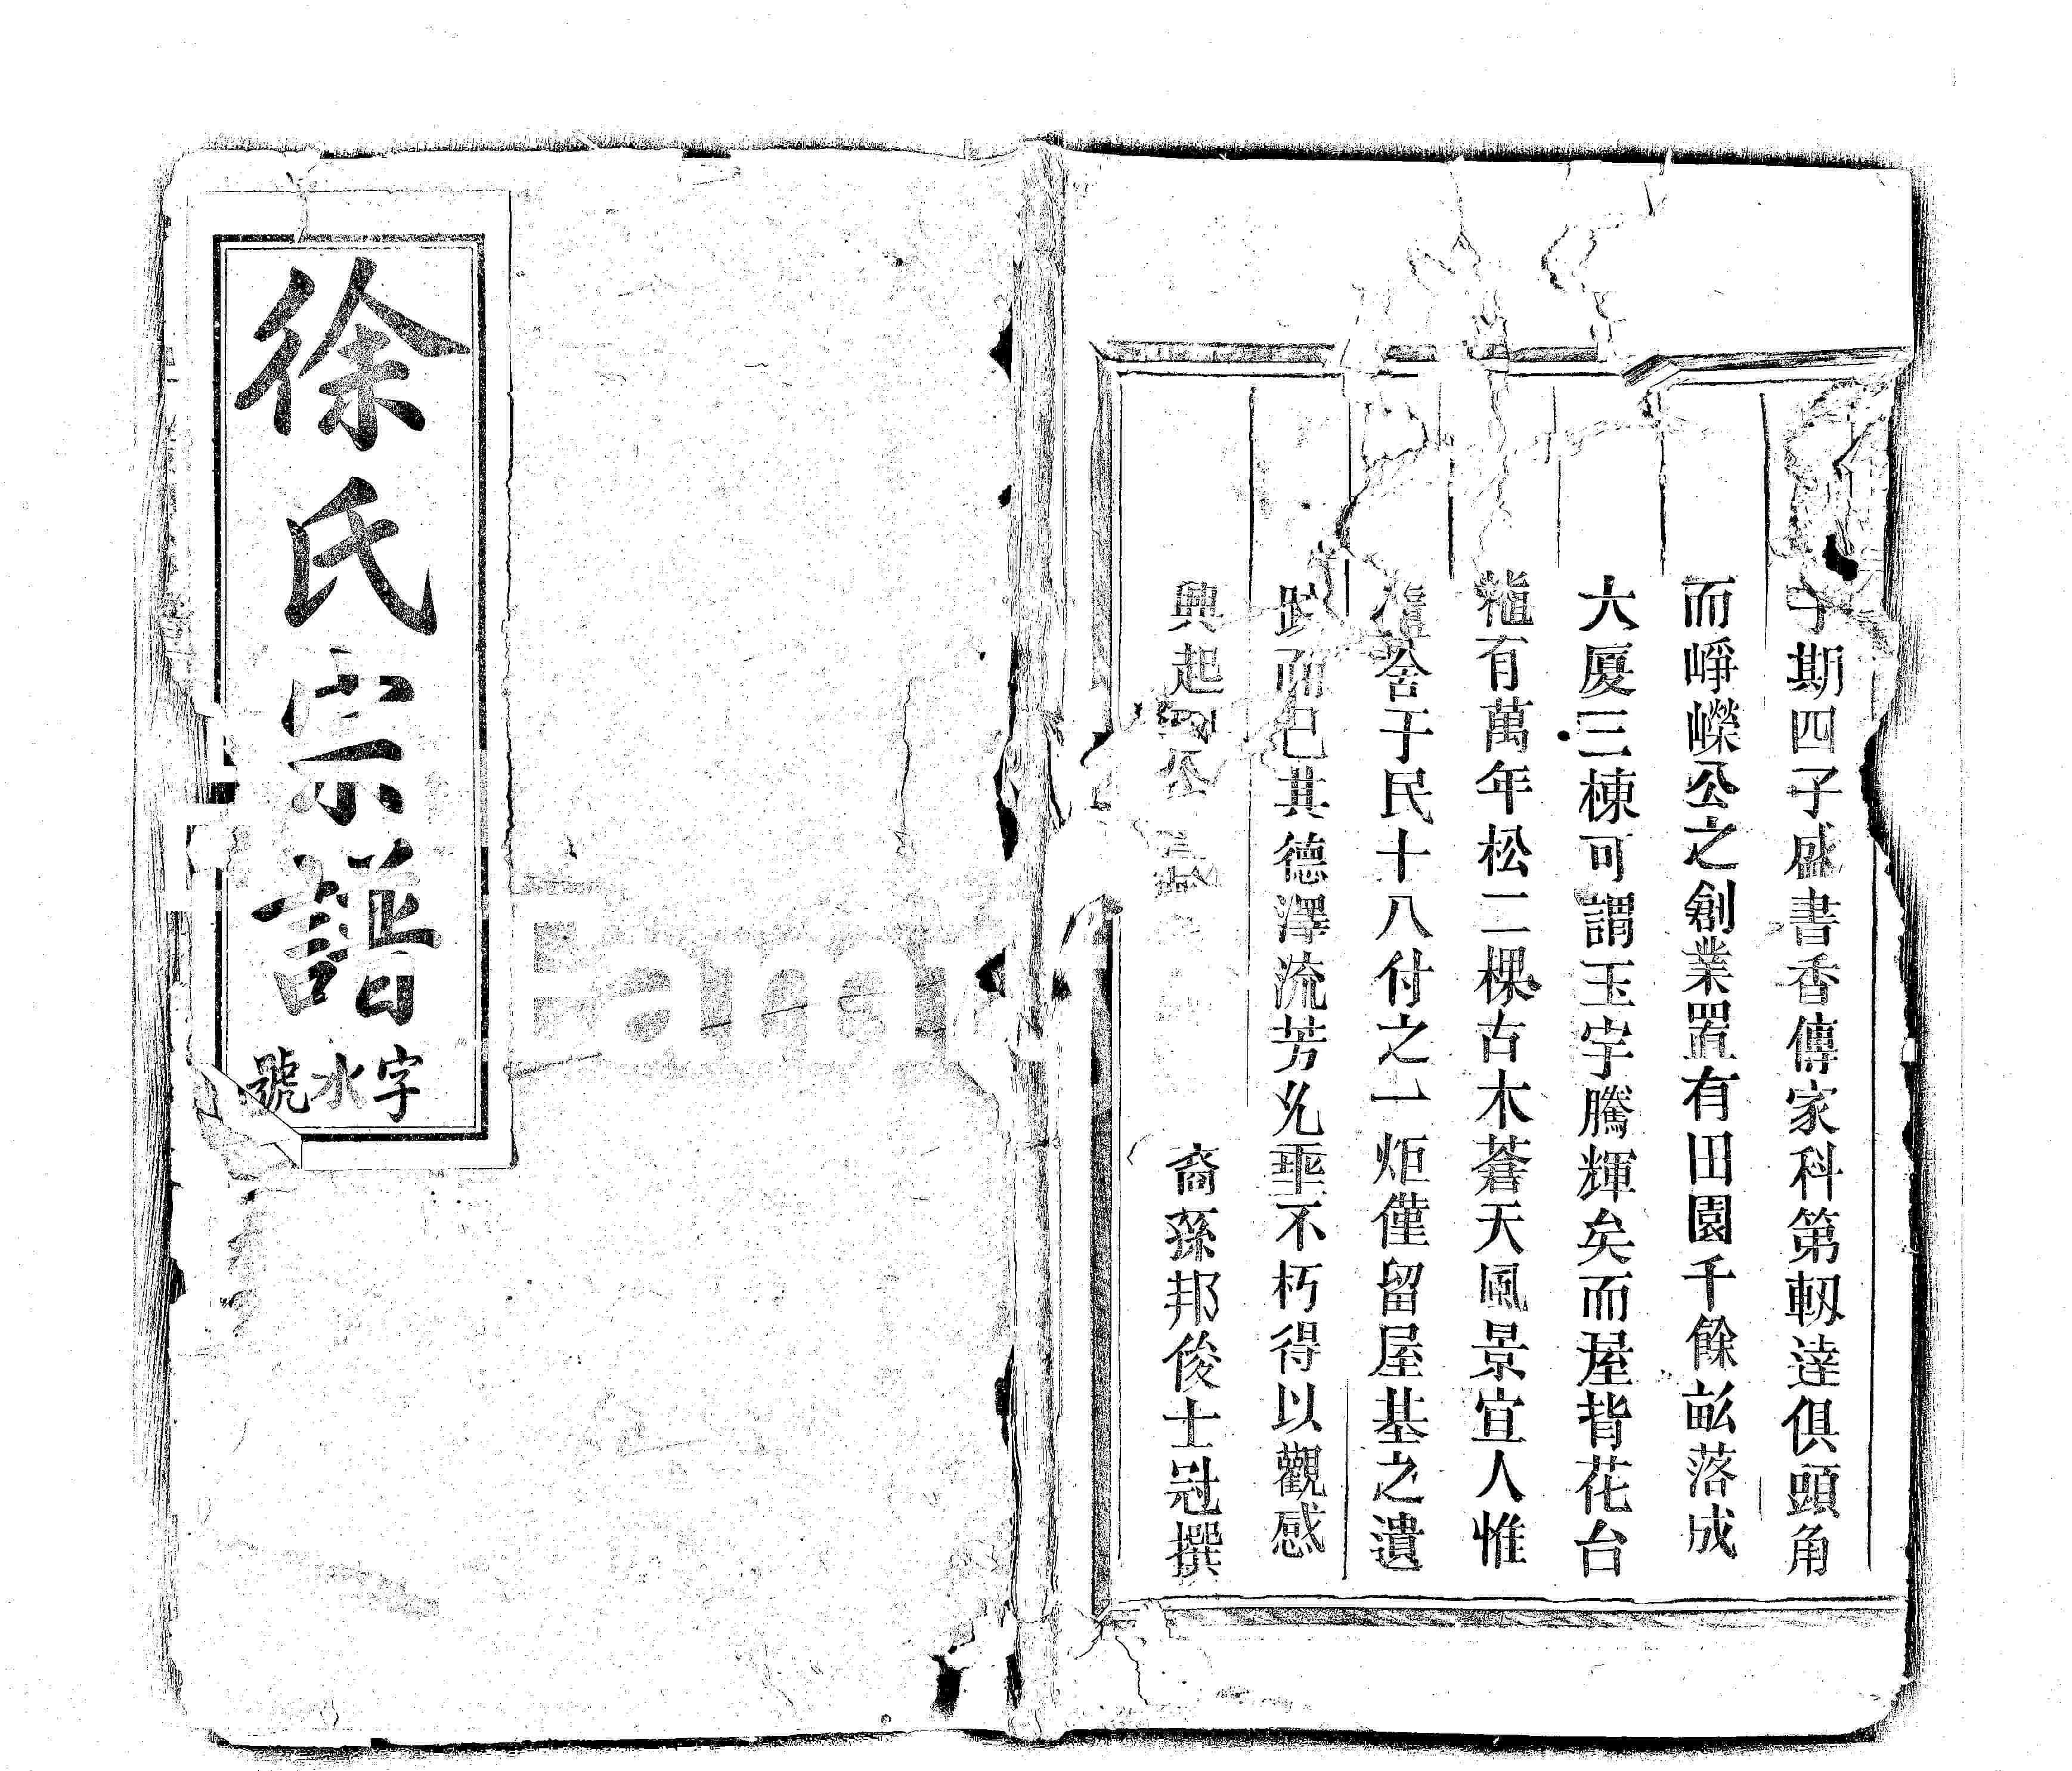 子期四子盛書香傳家科第軔達俱頭角
而崢嶸公之創業置有田園千餘畆落成
大厦三棟可謂玉宇騰輝矣而屋背花台
植有萬年松二棵古木蒼天風景宜人惟
舍于民十八付之一炬僅留屋基之遺
而已其德澤流芳永垂不朽得以觀感
興起
裔孫邦俊士冠撰
徐氏宗譜
字水號